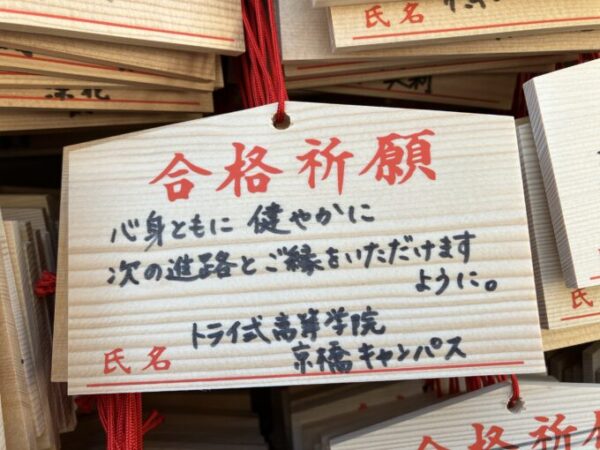 氏名
合格祈願
心身ともに 健やかに
次の進路とご縁をいただけます
ように。
トライ式高等学院
京橋キャンパス
氏名
氏
合格祈